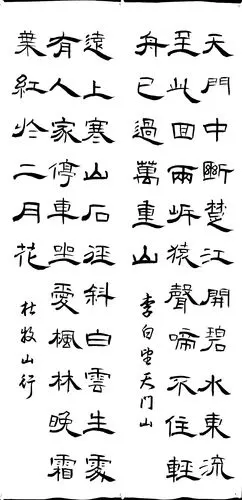 天門中斷楚江開碧水東流
至此回兩岸猿聲啼不住輕
舟已過萬重山
李白望天门山
遠上寒山石徑斜白雲生處
有人家停車坐愛楓林晚霜
葉紅於二月花
杜牧山行